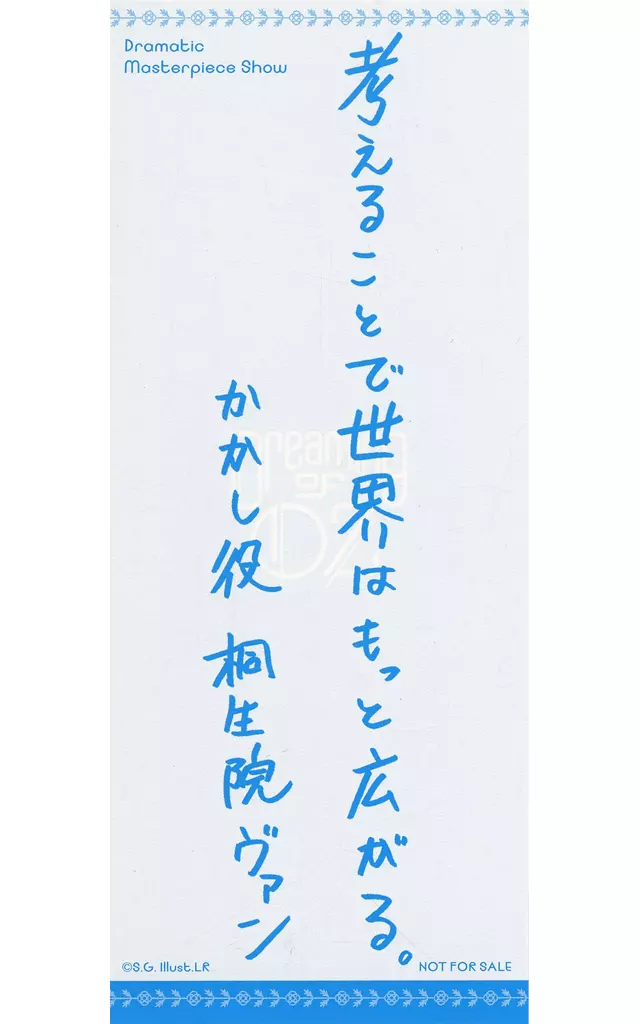 Dramatic
Masterpiece Show
考えることで世界はもっと広がる。
かかし役 桐生院ヴァン
Dreaming
of
OZ
©S.G. Illust.LR
NOT FOR SALE